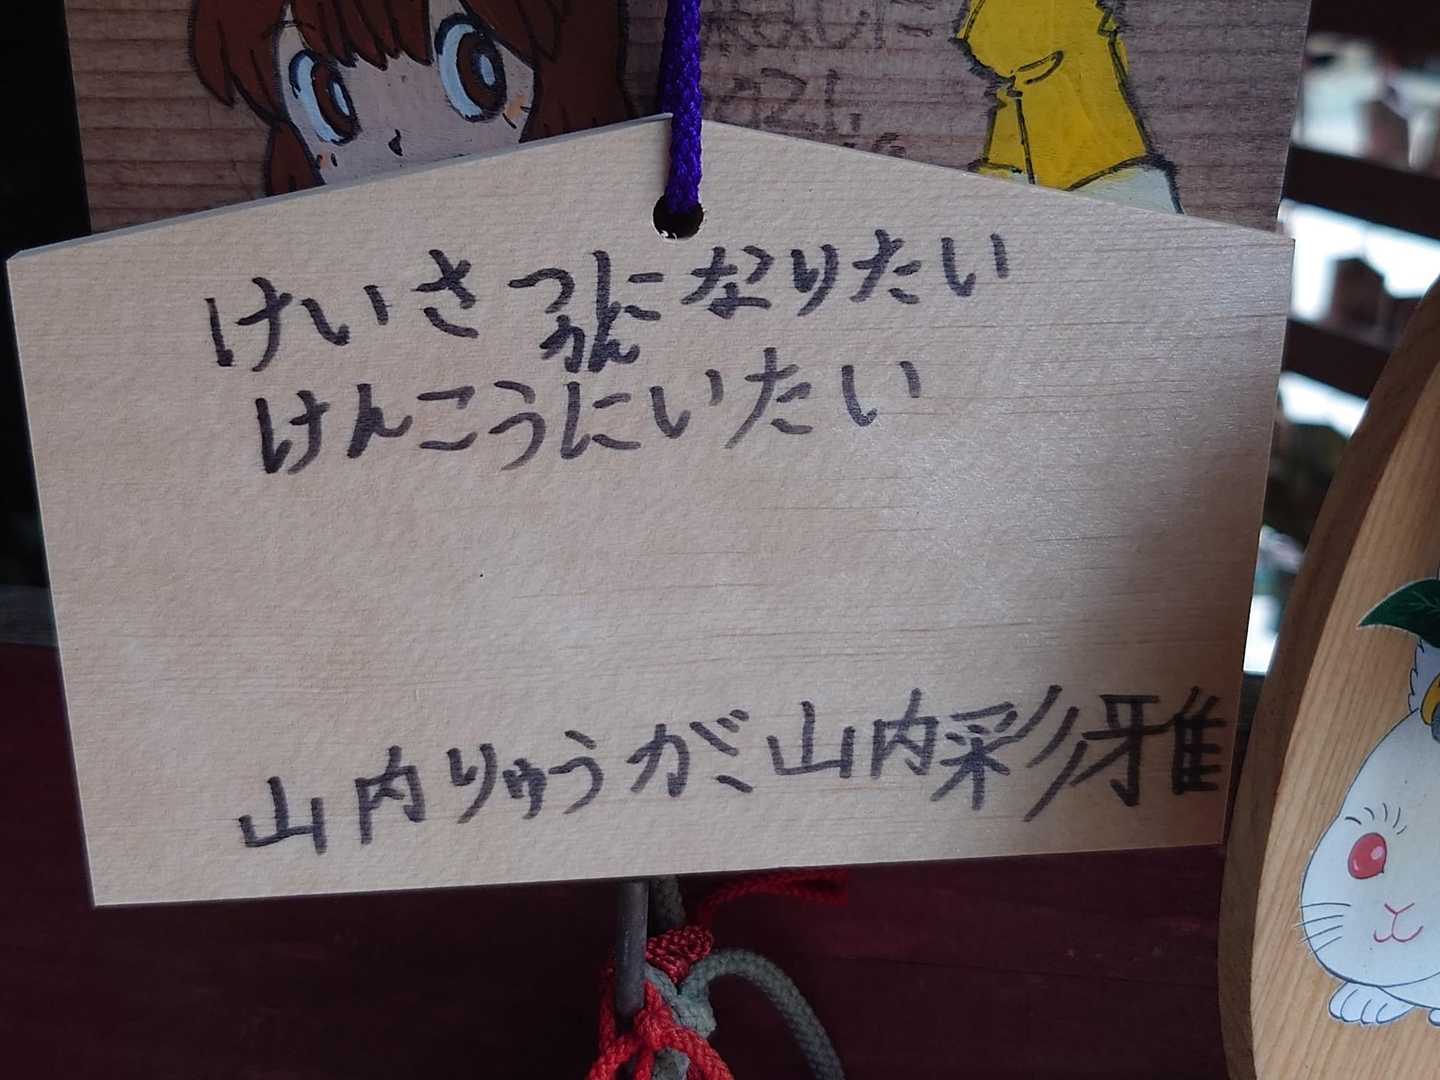 けいさつかんになりたい
けんこうにいたい
山内りゅうが 山内彩雅